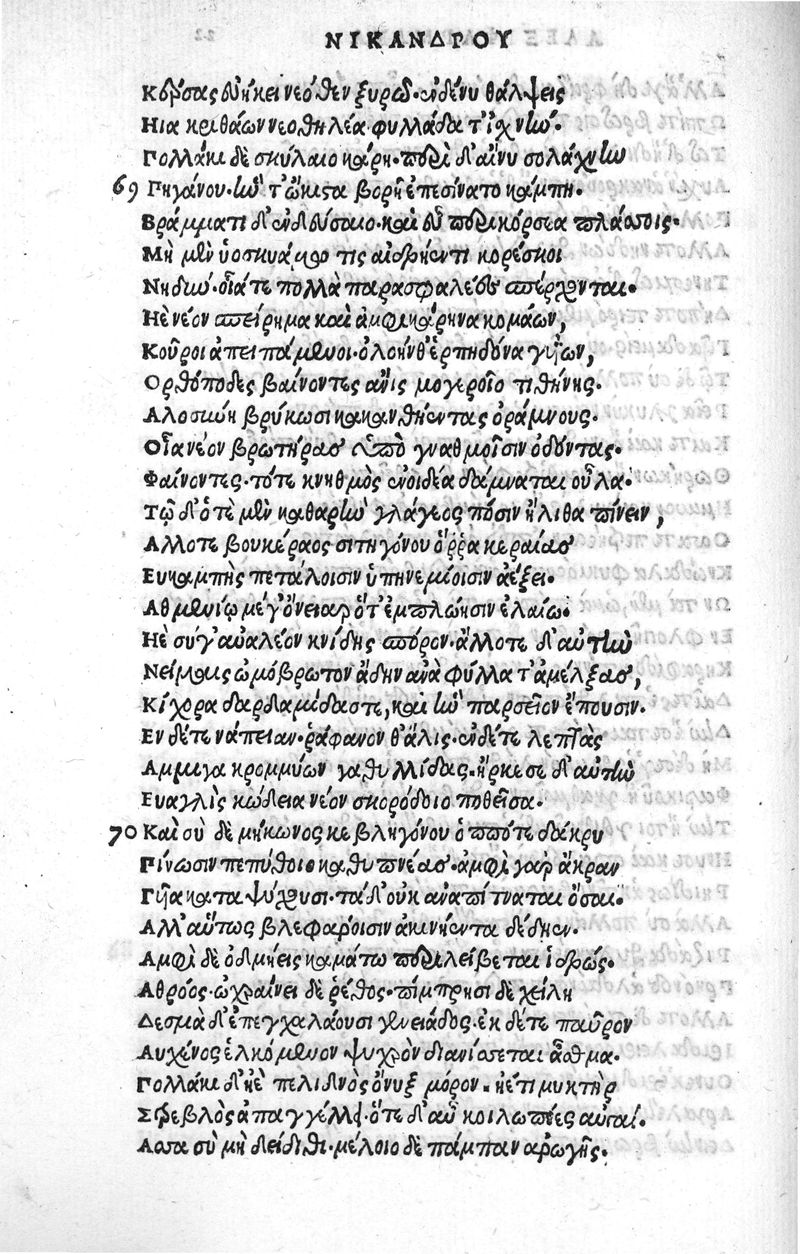 ΝΙΚΑΝΔΡΟΥ
Κόρσας δ᾽ ἥκει νεόθεν ξυρῷ· ἐν δέ νυ θάλψεις
Ηια κριθάων νεοθηλέα φυλλάδα τ᾽ ἰχνῶ·
Πολλάκι δὲ σκύλαιο κάρη· περὶ δ᾽ αἴνυσο λάχνω
69 Πηγάνου· ἣν τ᾽ ὤκιστα βορῇ ἐπεσίνατο κάμπη·
Βράμματι δ᾽ ἐνδεύσαιο· καὶ εὖ περὶ κόρσεα πλάσσοις·
Μὴ μὲν ὑοσκυάμῳ τις ἀιδρήεντι κορέσκοι
Νηδιώ· οἷάτε πολλὰ παρασφαλέες σπέρχονται·
Ηὲ νέον σπείρημα καὶ ἀμφικάρηνα κομάων,
Κοῦροι ἀπειπάμενοι· ὀλοήν θ᾽ ἑρπηδόνα γυίων,
Ορθόποδες βαίνοντες ἄνις μογεροῖο τιθήνης·
Αλοσύνῃ βρύκωσι κακανθήεντας ὀράμνους·
Οἷα νέον βρωτῆρας ὑπὸ γναθμοῖσιν ὀδόντας·
Φαίνοντες· τότε κνηθμὸς ἐνοιδέα δάμναται οὖλα·
Τῷ δ᾽ ὁτὲ μὲν καθαρὴν γλάγεος πόσιν ἤλιθα πίνειν,
Αλλοτε βουκέραος σιτηγόνου ὅῤῥα κεραίας
Ευκαμπὴς πετάλοισιν ὑπηνεμίοισιν ἀέξει·
Αθμενίῳ μέγ᾽ ὄνειαρ ὅτ᾽ ἐμπλώησιν ἐλαίῳ·
Ηὲ σύ γ᾽ αὐαλέον κνίδης σπόρον· ἄλλοτε δ᾽ αὐτὴν
Νείμαις ὠμόβρωτον ἄδην ἀνὰ φύλλα τ᾽ ἀμέλξας,
Κίχορα δαρδαμίδαστε, καὶ ἣν παρσεῖον ἔπουσιν·
Εν δέ τε νάπειαν· ῥάφανον θ᾽ ἅλις· ἐν δέ τε λεπτὰς
Αμμιγα κρομμύων γαθυλλίδας· ἤρκεσε δ᾽ αὐτὴν
Ευαγλὶς κώδεια νέον σκορόδοιο ποθεῖσα·
70 Καὶ σὺ δὲ μήκωνος κεβληγόνου ὁππότε δάκρυ
Πίνωσιν πεπύθοιο καθυπνέας· ἀμφὶ γὰρ ἄκραν
Γυῖα καταψύχουσι· τὰ δ᾽ οὐκ ἀναπίτναται ὄσσαι·
Αλλ᾽ αὕτως βλεφάροισιν ἀκινήεντα δέδηεν·
Αμφὶ δὲ ὀδμήεις καμάτῳ περιλείβεται ἱδρώς·
Αθρόος· ὠχραίνει δὲ ῥέθος· πίμπρησι δὲ χείλη
Δεσμὰ δ᾽ ἐπεγχαλάουσι γενειάδος· ἐκ δέ τε παῦρον
Αυχένος ἑλκόμενον ψυχρὸν διανίσεται ἆσθμα·
Πολλάκι δ᾽ ἠὲ πελιδνὸς ὄνυξ μόρον· ἠέ τι μυκτὴρ
Στρεβλὸς ἀπαγγέλλει· ὁτὲ δ᾽ αὖ κοιλωπέες αὐγαί·
Ασσα σὺ μὴ δείδιθι· μέλοιο δὲ πάμπαν ἀρωγῆς·